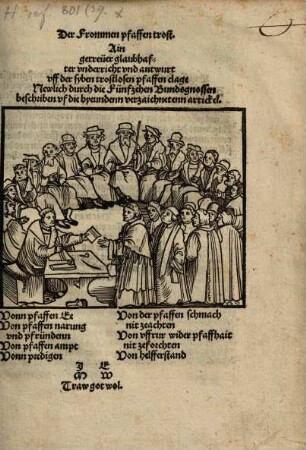 H ref 801 (39.
Der Frommen pfaffen trost.
Ain
getreüer glaubhaf-
ter vnderricht vnd antwurt
vff der syben trostlosen pfaffen clage
Newlich durch die Fünfzehen Bundsgnossen
beschriben vf die hyeundenn verzaichnetenn artickel.
Vonn pfaffen Ee
Von pfaffen narung
vnd pfründenn
Von pfaffen ampt
Vonn predigen
Von der pfaffen schmach
nit zeachten
Von vffrur wider pfaffhait
nit zeforchten
Von helfferstand
J E
M W
Traw got wol.